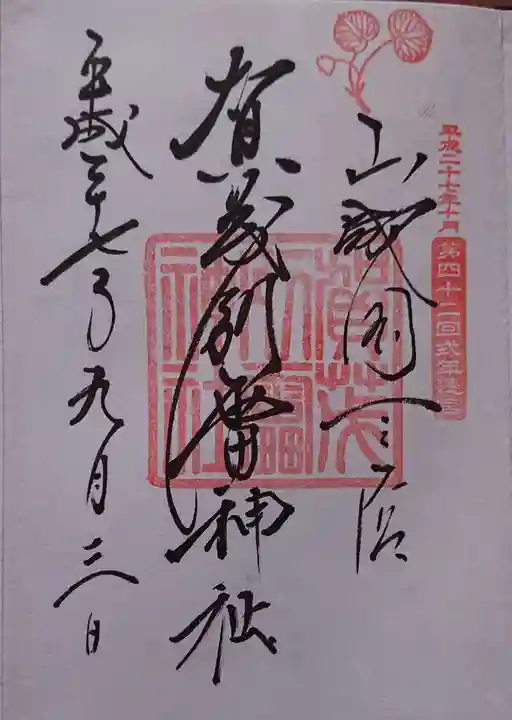 平成二十七年十月
第四十二回式年遷宮
山城国一之宮
賀茂別雷神社
平成二十七年九月三日
賀茂
別雷
神社